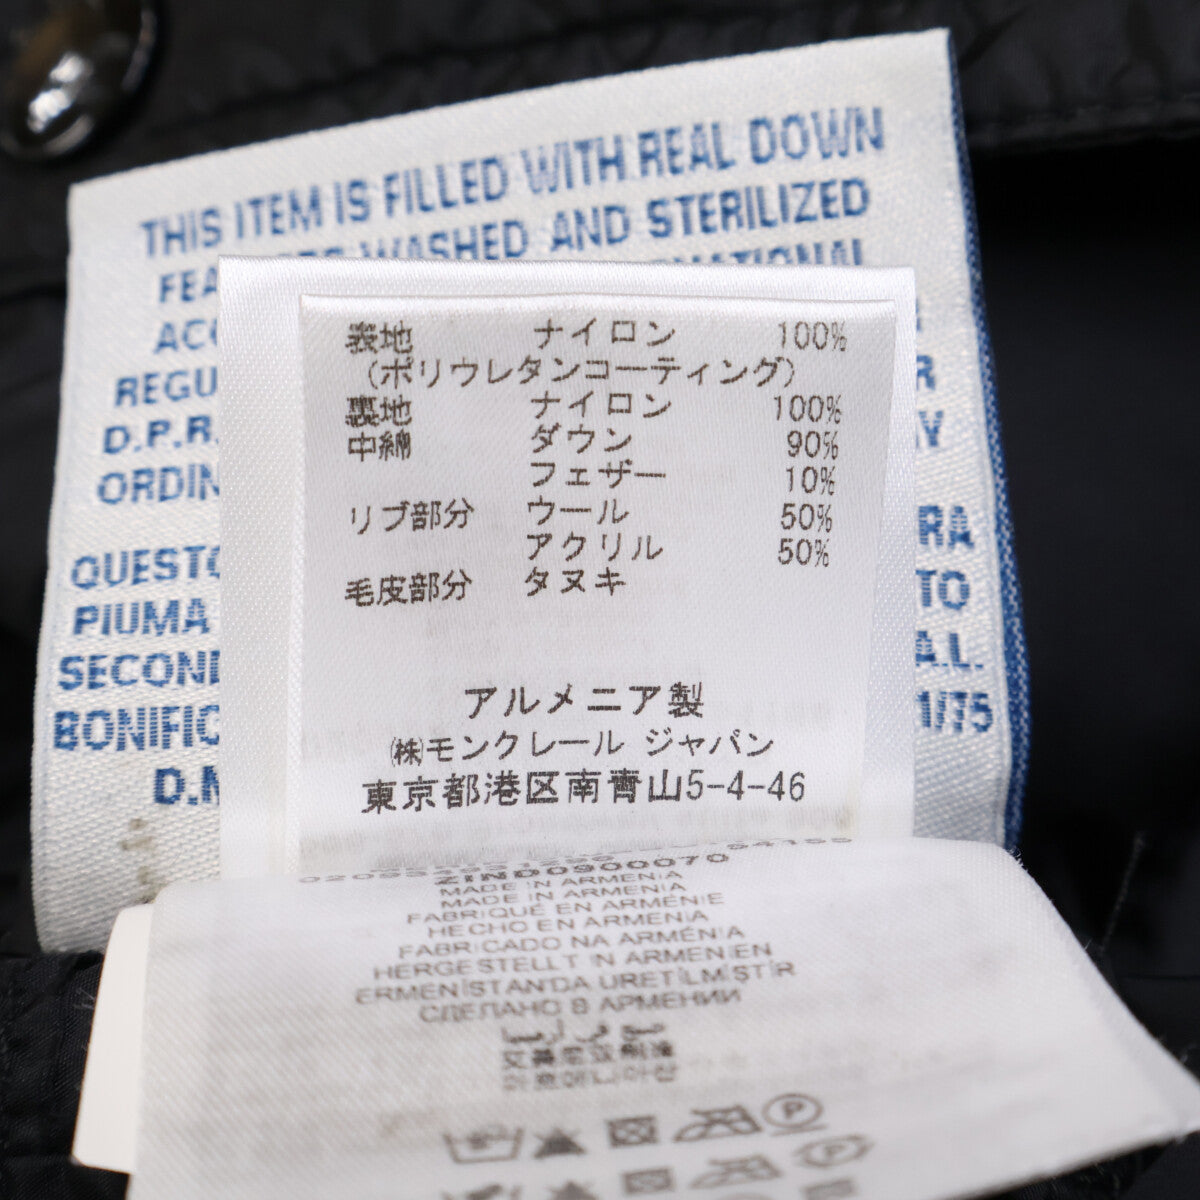 THIS ITEM IS FILLED WITH REAL DOWN
WASHED AND STERILIZED
REGU
D.P.R.
ORDIN
QUESTO
PIUMA
SECOND
BONIFIC
D.M
RA
TO
A.L.
1/75
表地 ナイロン 100%
(ポリウレタンコーティング)
裏地 ナイロン 100%
中綿 ダウン 90%
フェザー 10%
リブ部分 ウール 50%
アクリル 50%
毛皮部分 タヌキ
アルメニア製
㈱モンクレール ジャパン
東京都港区南青山5-4-46
ZIND0900070
MADE IN ARMENIA
MADE IN ARMENIA
FABRIQUÉ EN ARMÉNIE
HECHO EN ARMENIA
FABRICADO NA ARMÉNIA
HERGESTELLT IN ARMENIEN
ERMENİSTAN'DA ÜRETİLMİŞTİR
СДЕЛАНО В АРМЕНИИ